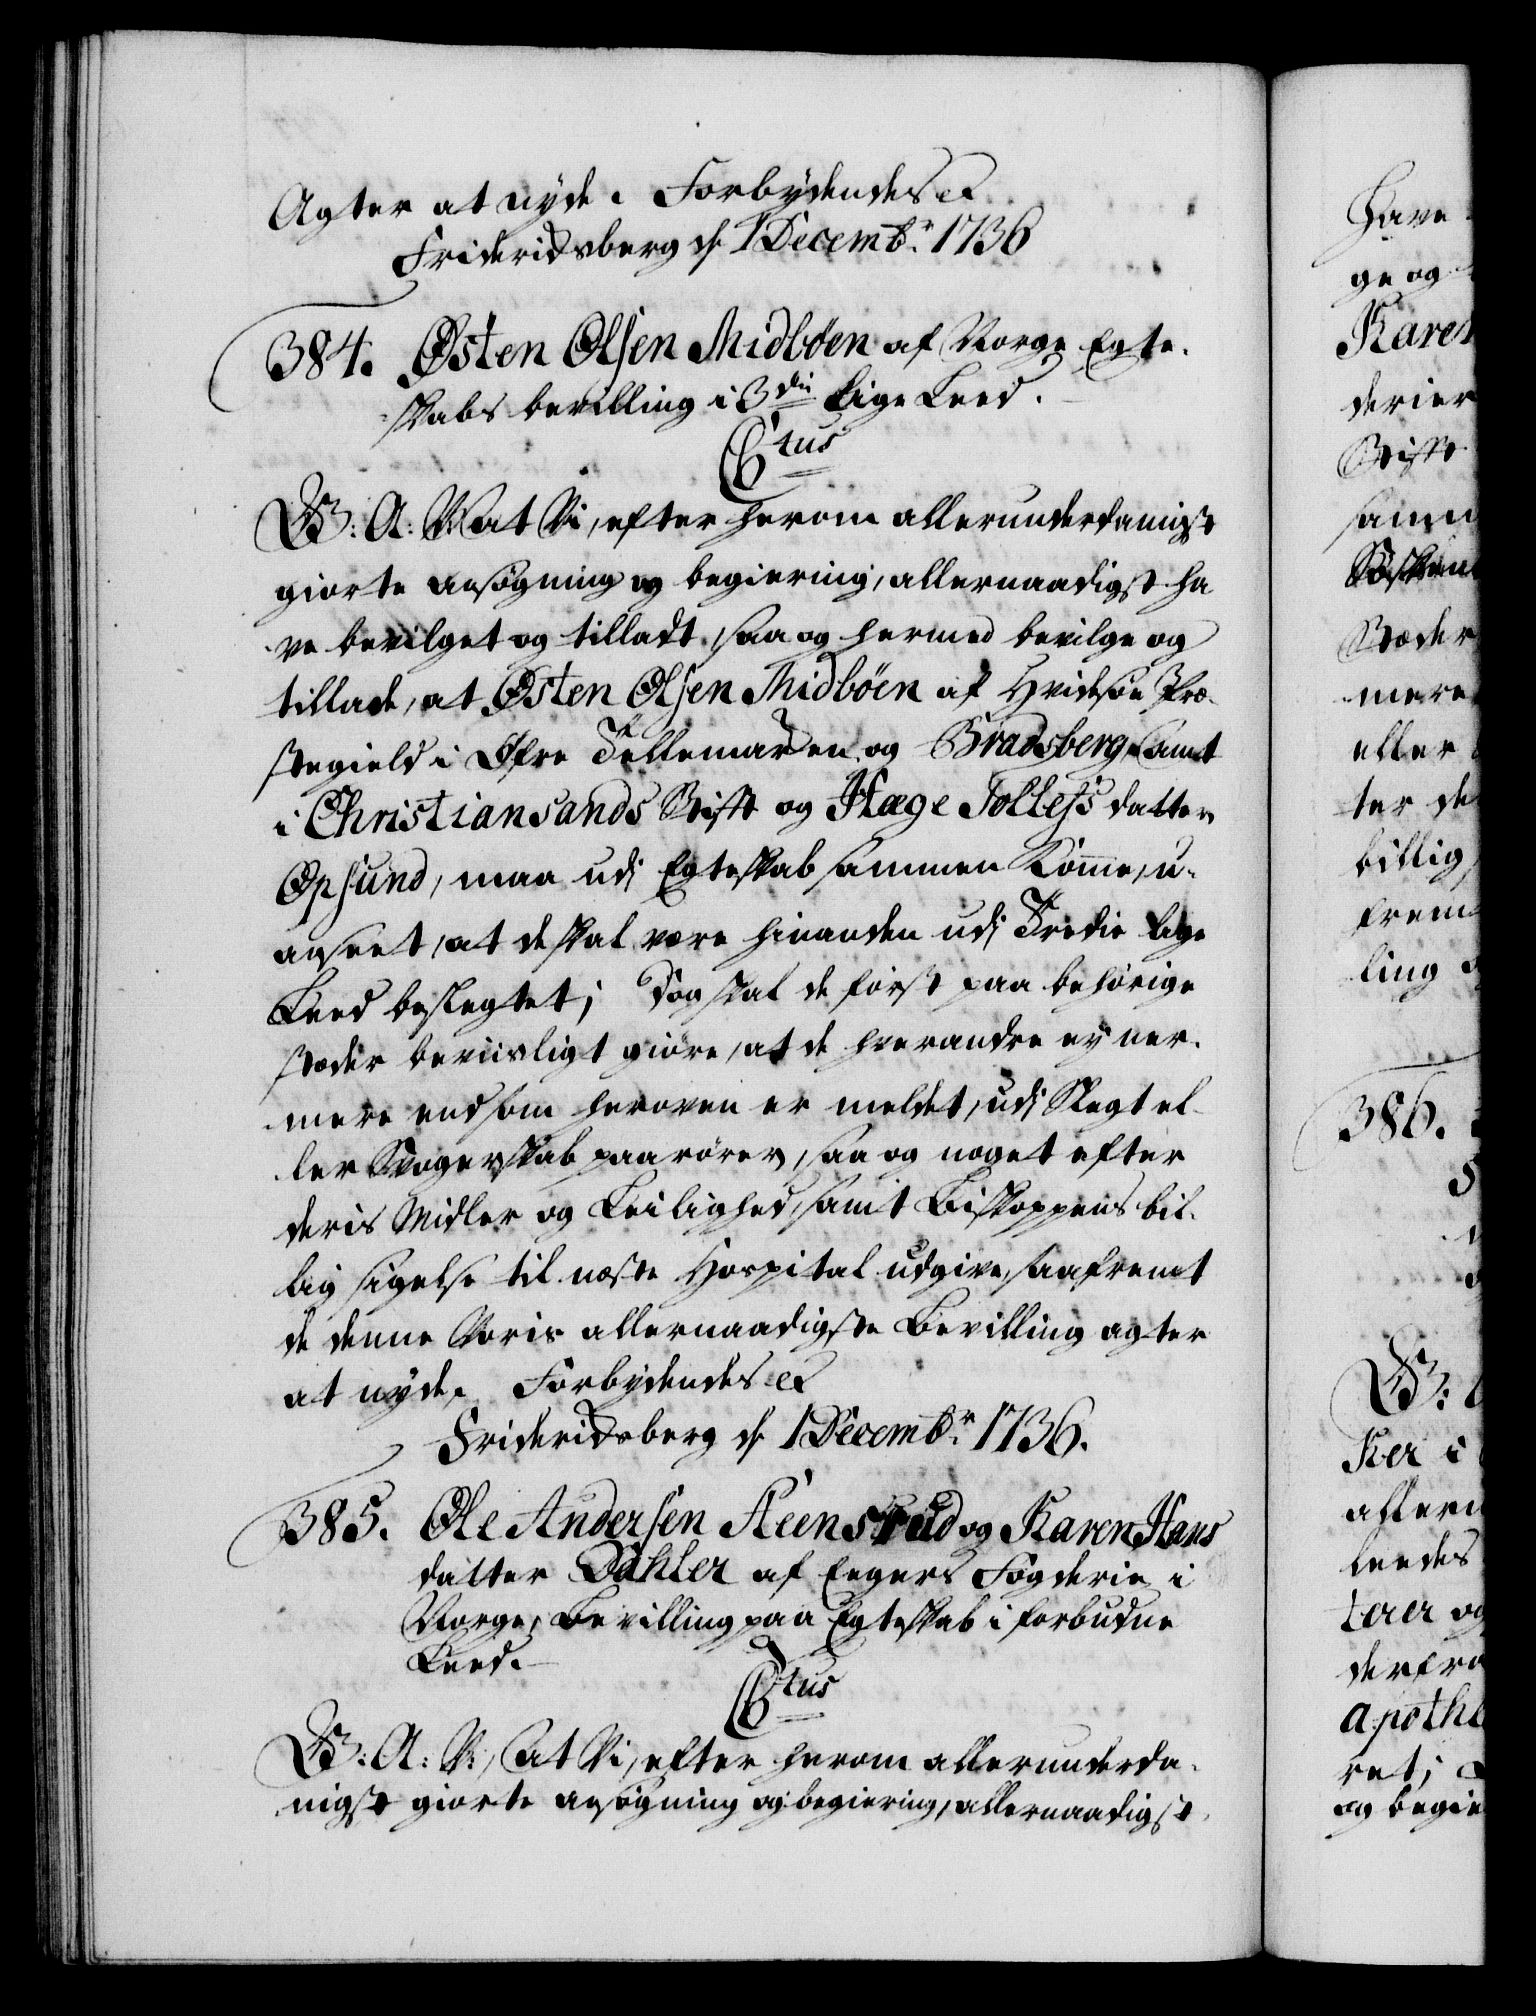 Agter at nyde. Forbydendes &c
Friderichsberg d. 1 Decembr. 1736
384. Østen Olsen Midböen af Norge Egte-
skabs bevilling i 3die Lige Leed.
C6tus
G: A: V: at Vi, efter herom allerunderdanigst
giorte ansøgning og begiering, allernaadigst ha
ve bevilget og tilladt, saa og hermed bevilge og
tillade, at Østen Olsen Midböen af Hvidesøe Præ-
stegield i Øfre Tellemarken og Bradsberg Amt
i Christiansands Stift og Hæge Tollefs datter
Opsund, maa udi Egteskab sammen komme, u-
anseet, at de skal være hinanden udi Tredie lige
Leed beslegtet; Dog skal de först paa behörige
stæder beviisligt giöre, at de hverandre ey ner-
mere end som heroven er meldet, udi Slegt el-
ler Svogerskab paarörer, saa og noget efter
deris Midler og Leilighed, samt Biskoppens bil-
lig sigelse til næste Hospital udgive, saafremt
de denne Voris allernaadigste Bevilling agter
at nyde. Forbydendes &c
Friderichsberg d. 1 Decembr. 1736.
385. Ole Andersen Steensrud og Karen Hans
datter Dahler af Eegers Fogderie i
Norge, Bevilling paa Egteskab i forbudne
Leed.
C6tus
G: A: V:, at Vi, efter herom allerunderda-
nigst giorte ansøgning og begiering, allernaadigst
have
ge og
Karen
derier
Stift
samm
Stæder
mere
eller
ter de
billig
frem
ling
386.
G:
Ker i
allern
leedes
terer og
derfra
apothe
ret;
og begie